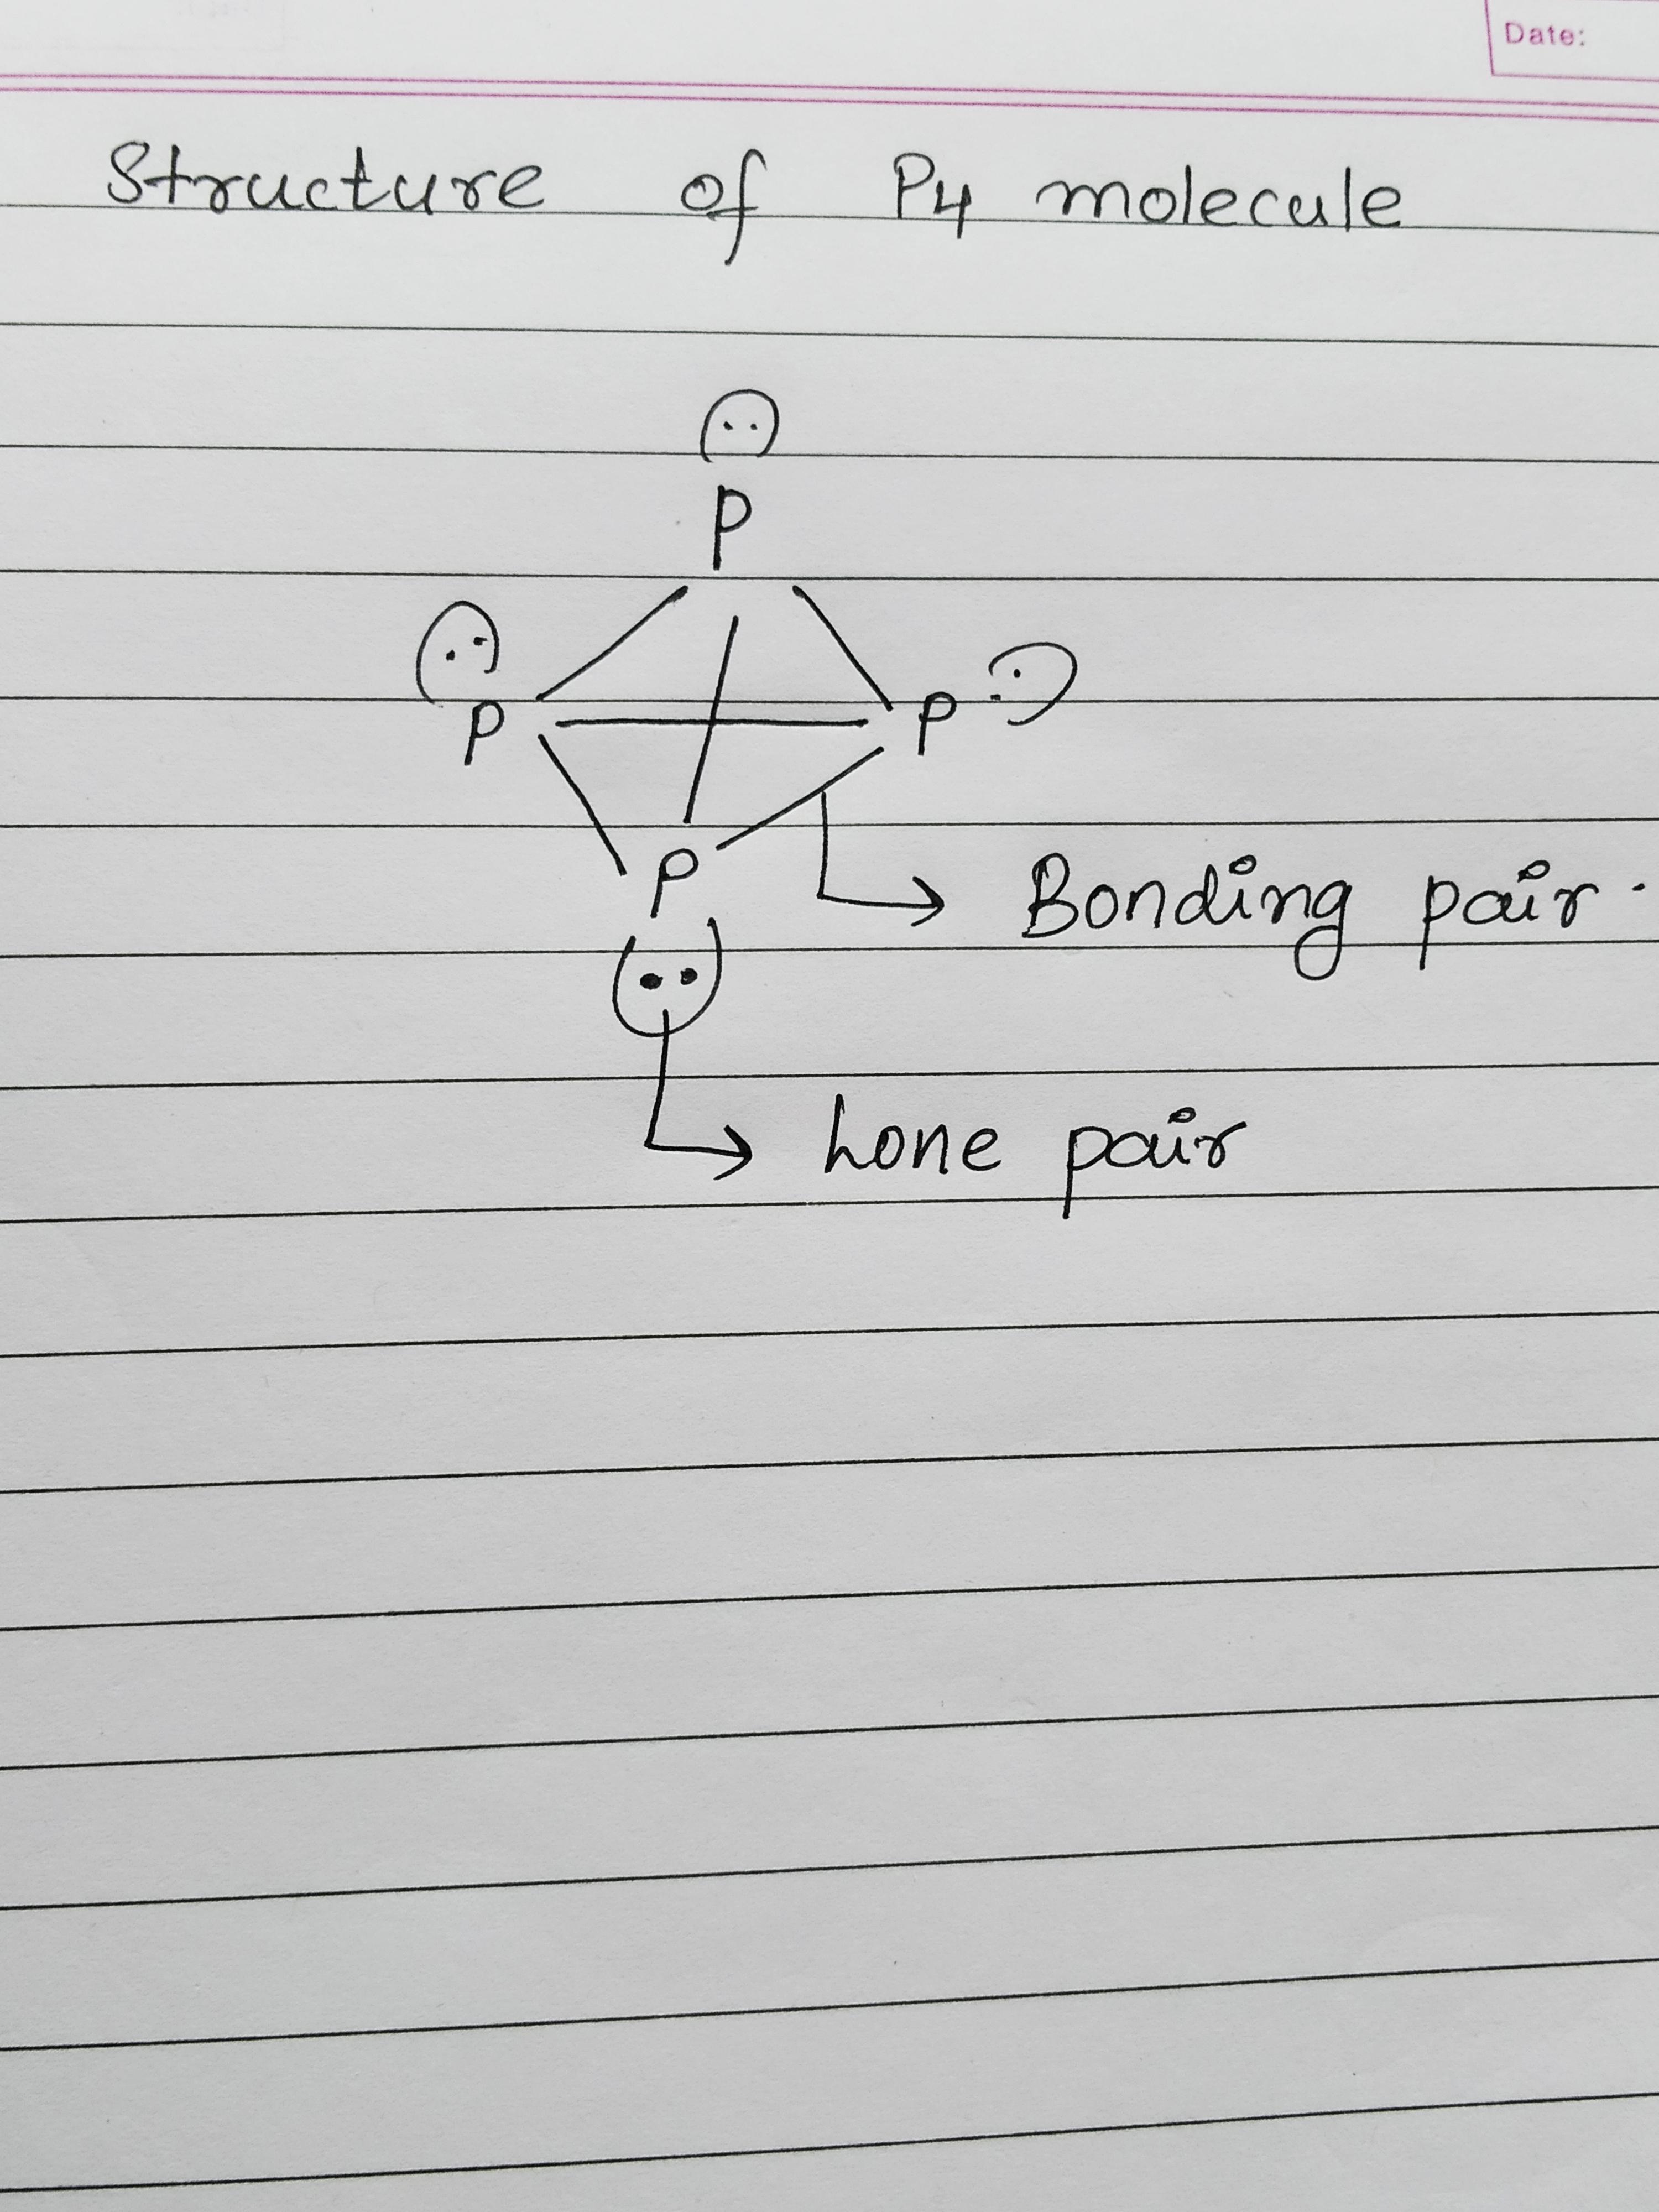 Date:
Structure of P4 molecule
P
P P
P
Bonding pair.
Lone pair